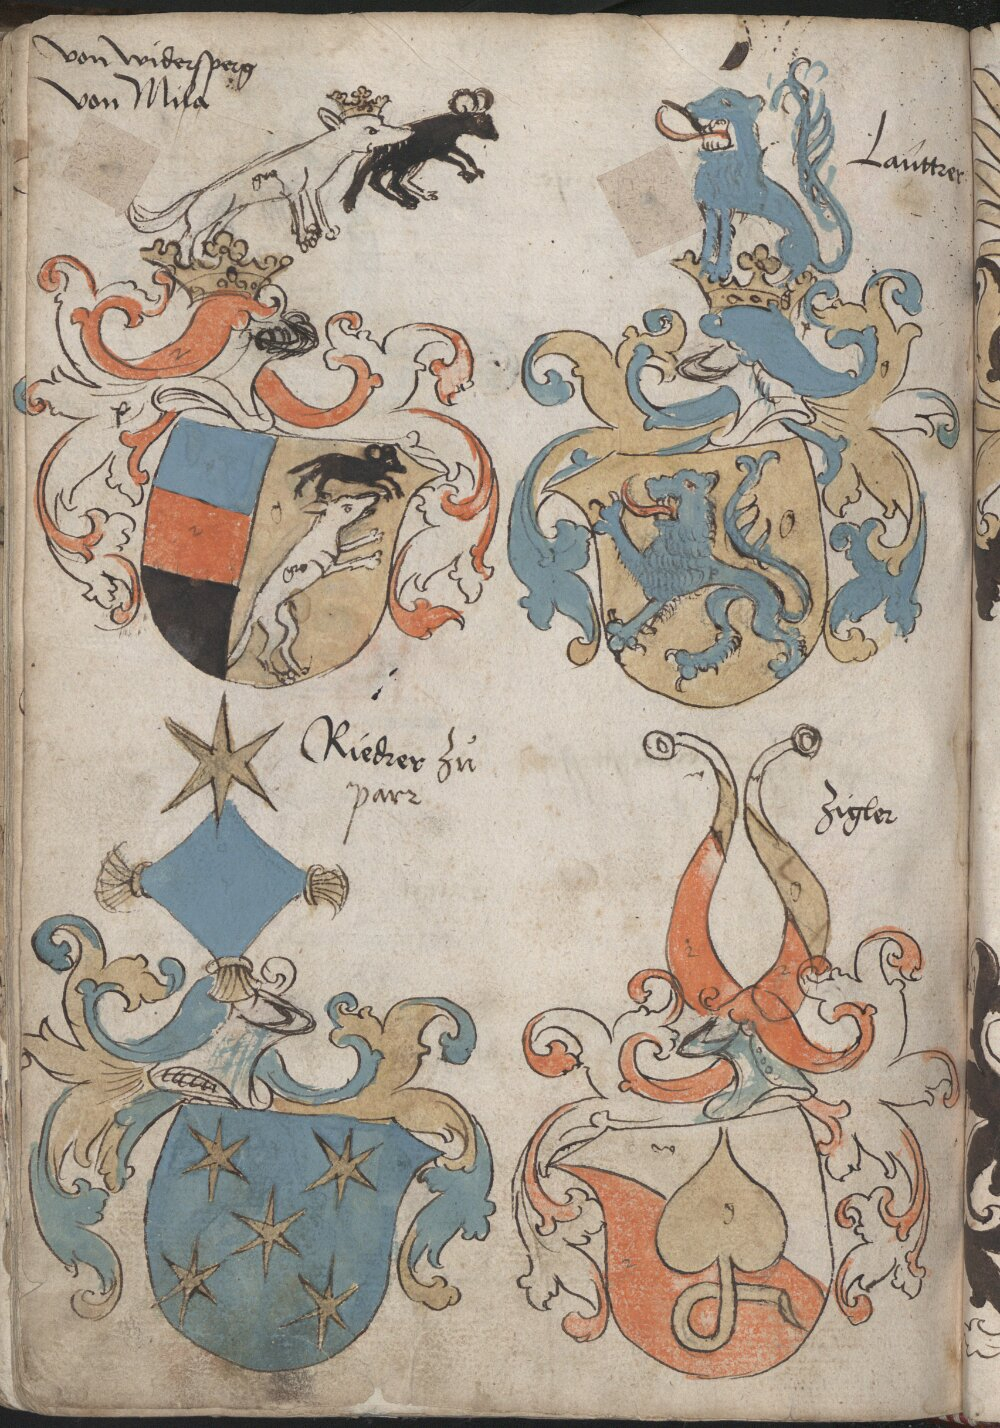 von widersperg
von Mila
Lauttrer
gra
gra
Riedrer zu
parr
Zigler